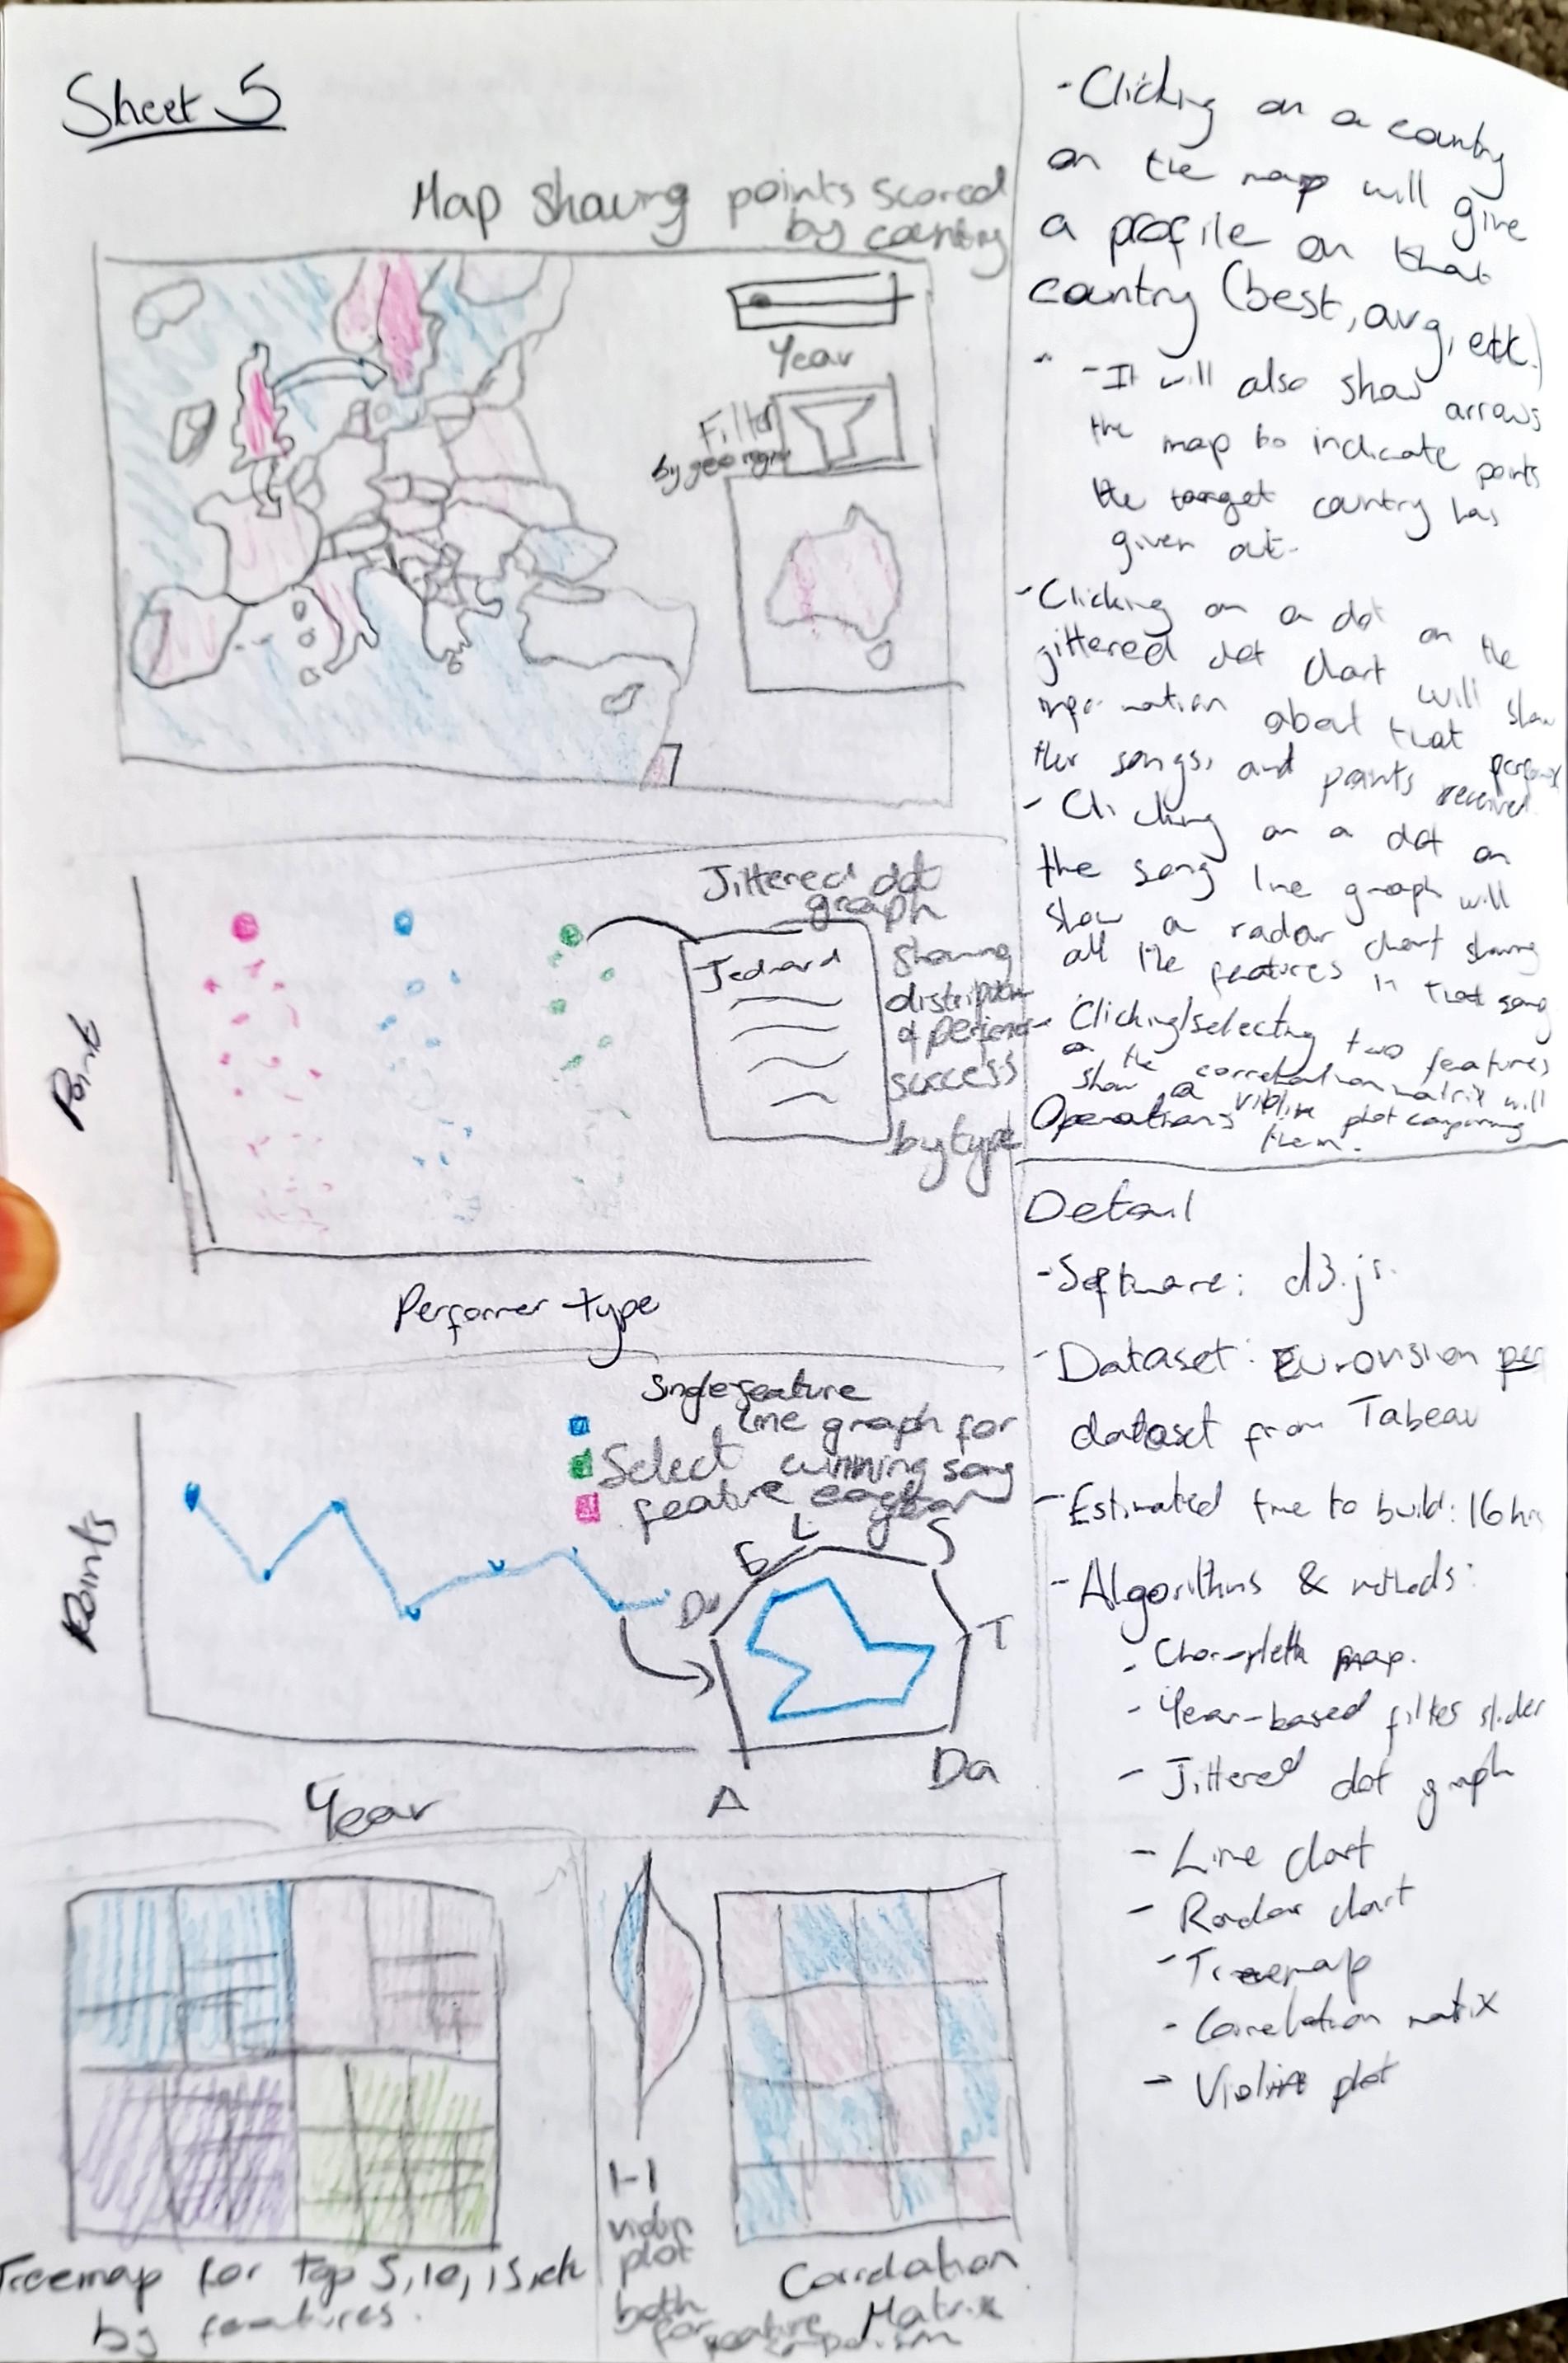 Sheet 5
Map showing points scored
by country
Year
Filter
by geography
Jittered dot
graph
showing
distribution
of performer
success
by type
Jedward
Points
Performer type
Single feature
line graph for
Select winning song
feature each year
Points
Year
Du
E
L
S
T
Da
A
Treemap for top 5, 10, 15, etc
by features.
1-1
violin
plot
both
for feature
comparison
Correlation
Matrix
- Clicking on a country
on the map will give
a profile on that
country (best, avg, etc.)
- It will also show arrows
the map to indicate points
the target country has
given out.
- Clicking on a dot on the
jittered dot chart will show
information about that performer
their songs, and points received
- Clicking on a dot on
the song line graph will
show a radar chart showing
all the features in that song
- Clicking/selecting two features
on the correlation matrix will
show a violin plot comparing
them.
Operations
Detail
- Software: d3.js.
- Dataset: Eurovision per
dataset from Tabeau
- Estimated time to build: 16 hrs
- Algorithms & methods:
- Choropleth map.
- Year-based filter slider
- Jittered dot graph
- Line chart
- Radar chart
- Treemap
- Correlation matrix
- Violin plot